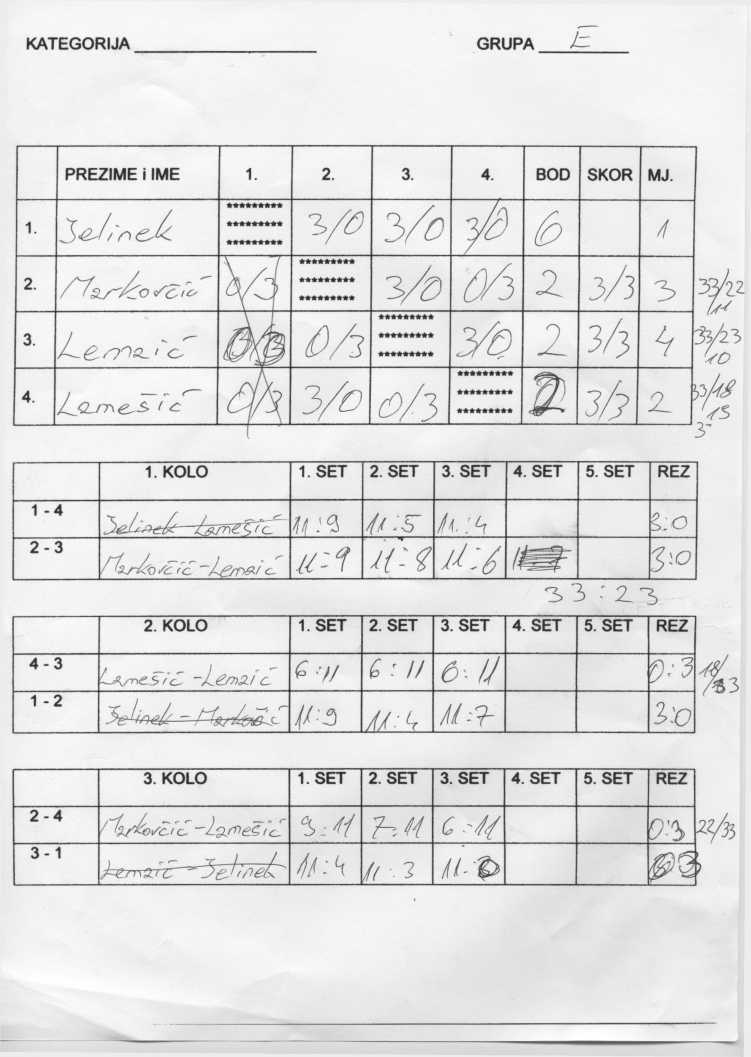 KATEGORIJA ____________ GRUPA E
PREZIME i IME 1. 2. 3. 4. BOD SKOR MJ.
1. Jelinek ********* 3/0 3/0 3/0 6 1
*********
*********
2. Markovčić 0/3 ********* 3/0 0/3 2 3/3 3 33/22
********* 11
*********
3. Lemaić 0/3 0/3 ********* 3/0 2 3/3 4 33/23
********* 10
*********
4. Lamešić 0/3 3/0 0/3 ********* 2 3/3 2 33/18
********* 15
*********
1. KOLO 1. SET 2. SET 3. SET 4. SET 5. SET REZ
1 - 4 Jelinek Lamešić 11:9 11:5 11:4 3:0
2 - 3 Markovčić-Lemaić 11-9 11-8 11-6 3:0
33:23
2. KOLO 1. SET 2. SET 3. SET 4. SET 5. SET REZ
4 - 3 Lamešić-Lemaić 6:11 6:11 6:11 0:3 18/33
1 - 2 Jelinek-Markovčić 11:9 11:4 11-7 3:0
3. KOLO 1. SET 2. SET 3. SET 4. SET 5. SET REZ
2 - 4 Markovčić-Lamešić 9:11 7-11 6:11 0:3 22/33
3 - 1 Lemaić-Jelinek 11:4 11:3